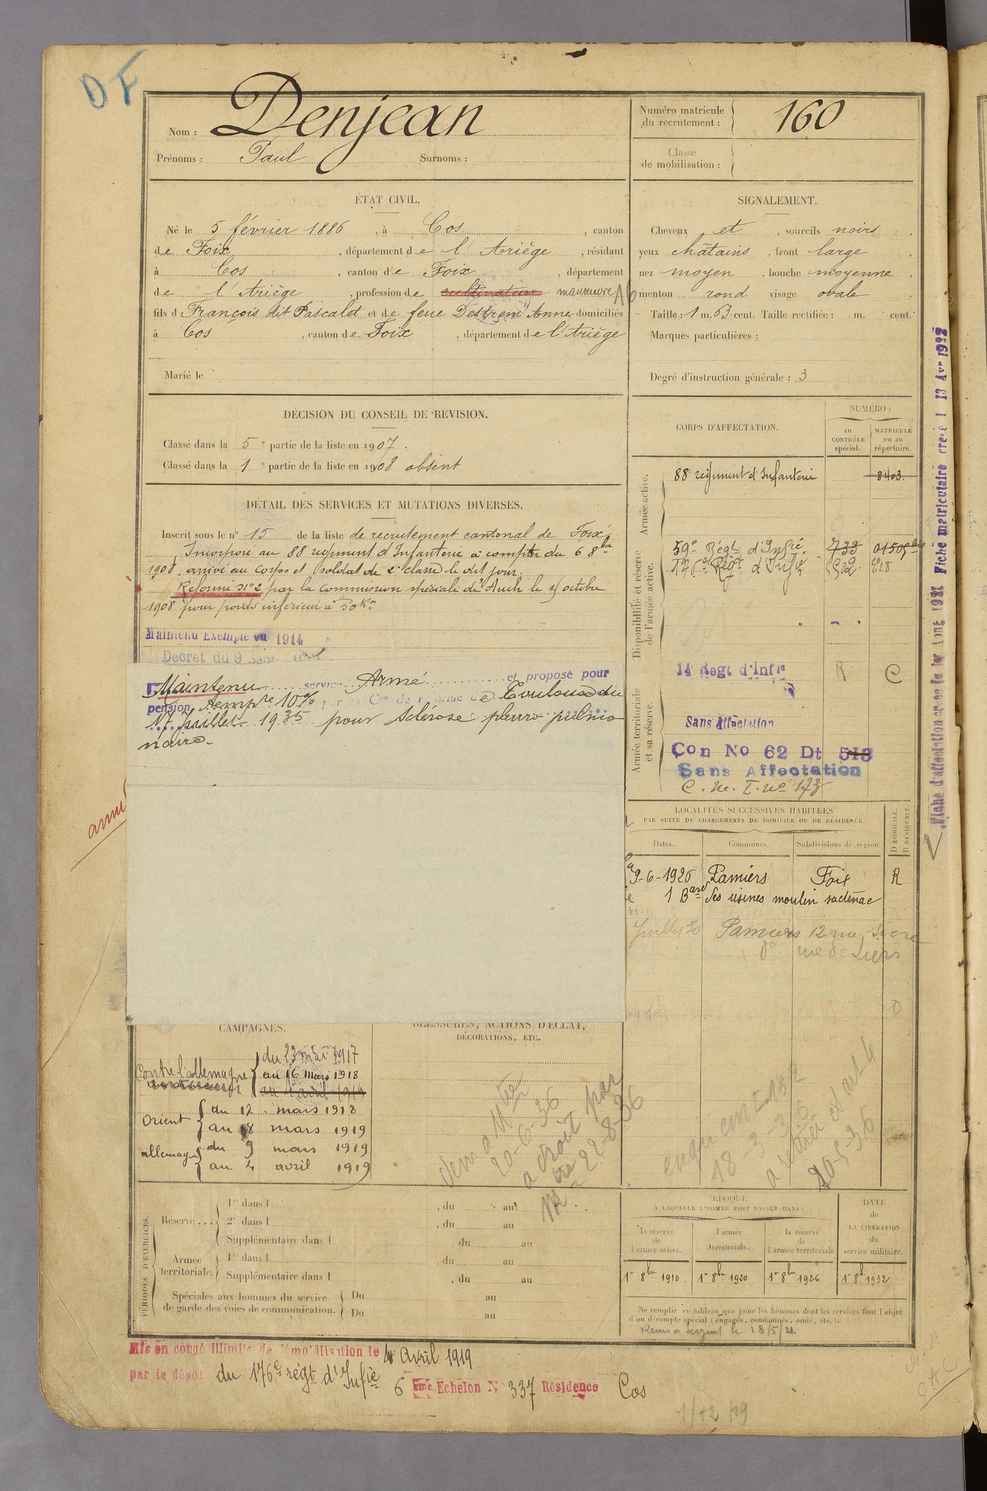 DF
Nom : Denjean
Prénoms : Paul Surnoms :
Numéro matricule
du recrutement : 160
Classe
de mobilisation :
ÉTAT CIVIL.
Né le 5 février 1886, à Cos, canton
de Foix, département de l'Ariège, résidant
à Cos, canton de Foix, département
de l'Ariège, profession de cultivateur manœuvre
fils de François dit Pascalet et de feue Destrem Anne domiciliés
à Cos, canton de Foix, département de l'Ariège
Marié le
SIGNALEMENT.
Cheveux et sourcils noirs
yeux châtains, front large
nez moyen, bouche moyenne
menton rond visage ovale
Taille : 1 m. 63 cent. Taille rectifiée : m. cent.
Marques particulières :
Degré d'instruction générale : 3
DÉCISION DU CONSEIL DE REVISION.
Classé dans la 5e partie de la liste en 1907.
Classé dans la 1e partie de la liste en 1908 absent
DÉTAIL DES SERVICES ET MUTATIONS DIVERSES.
Inscrit sous le n° 15 de la liste de recrutement cantonal de Foix
Incorporé au 88 régiment d'Infanterie à compter du 6 8bre
1908, arrivé au corps et soldat de 2e classe le dit jour.
Réformé N°2 par la commission spéciale d'Auch le 15 octobre
1908 pour poids inférieur à 50 k.
Maintenu Exempté en 1914
Décret du 9 Sept 1914
Maintenu service Armé et proposé pour
pension temp^re 10% par la Con de réforme de Toulouse du
17 Juillet 1935 pour sclérose pleuro pulmo
naire.
CORPS D'AFFECTATION.
NUMÉRO :
au
CONTRÔLE
spécial.
MATRICULE
ou au
répertoire.
Armée active.
88 régiment d'Infanterie 8403
Disponibilité et réserve
de l'armée active.
59e Régt d'Infie 733
176e Régt d'Infie
14 Regt d'Infie R C
Armée territoriale
et sa réserve.
Sans Affectation
Con No 62 Dt 513
Sans Affectation
Fiche matriculaire créée le 13 Avr 1932
LOCALITÉS SUCCESSIVES HABITÉES
PAR SUITE DE CHANGEMENTS DE DOMICILE OU DE RÉSIDENCE.
Dates. Communes. Subdivisions de région. D DOMICILE. R RÉSIDENCE.
9-6-1926 Pamiers Foix R
les usines moulin
Juillet 30 Pamiers 12 rue
annulé
CAMPAGNES.
Contre l'allemagne du 23 mai 1917
au 16 Mars 1918
au 4 avril 1919
Orient du 12 mars 1918
au 8 mars 1919
allemagne du 9 mars 1919
au 4 avril 1919
BLESSURES, ACTIONS D'ÉCLAT,
DÉCORATIONS, ETC.
20-6-36
a droit par
22-8-36
18-3-36
20-5-30
PÉRIODES D'EXERCICES.
Réserve ... 1re dans l du au
2e dans l du au
Supplémentaire dans l du au
Armée
territoriale. 1re dans l du au
Supplémentaire dans l du au
Spéciales aux hommes du service
de garde des voies de communication. Du au
Du au
ÉPOQUE
À LAQUELLE L'HOMME DOIT PASSER DANS :
la réserve
de
l'armée active.
l'armée
territoriale.
la réserve
de
l'armée territoriale
DATE
de
LA LIBÉRATION
du
service militaire.
1er 8bre 1910 1er 8bre 1920 1er 8bre 1926 1er 8bre 1932
Ne remplir ce tableau que pour les hommes dont les services font l'objet
d'un décompte spécial (engagés, condamnés, omis, etc.).
Mis en congé illimité de démobilisation le 4 avril 1919
par le dépôt du 176e régt d'Infie 6 eme Echelon N° 337 Résidence Cos